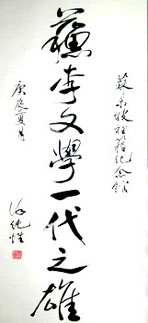 蘇東坡祠籍紀念館
蘇李文學一代之雄
庚辰夏月